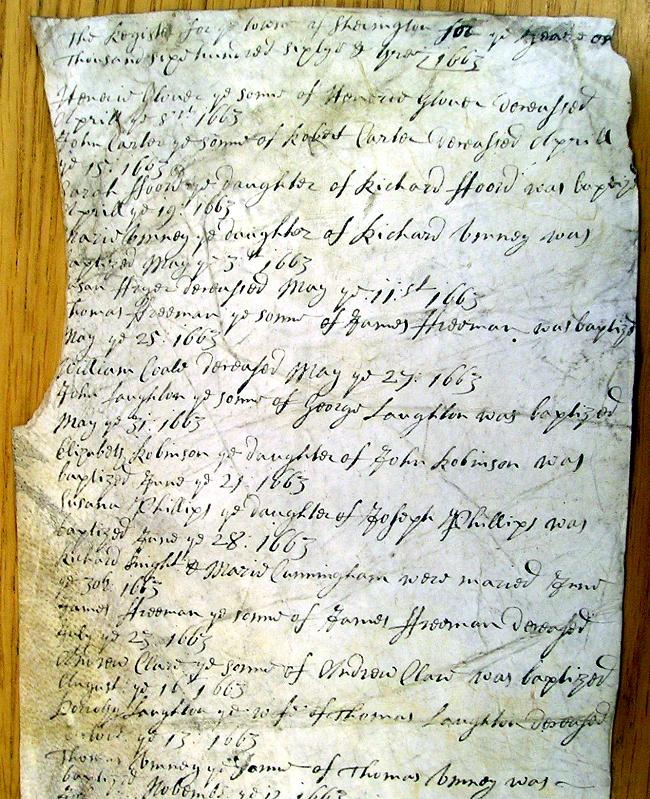 The Register for ye towne of Sherington for ye yeare on
thousand sixe hundred sixtye & three 1663
Henerie Glover ye sonne of Henerie Glover deceased
Aprill ye 1663
John Carter ye sonne of Robert Carter deceased Aprill
ye 15: 1663
Sarah Hoord ye daughter of Richard Hoord was baptized
Aprill ye 19th 1663
Marie ye daughter of Richard was
baptized May ye 3th 1663
deceased May ye 11:st 1663
Thomas Freeman ye sonne of James Freeman was baptized
May ye 25: 1663
William Coale deceased May ye 27: 1663
John Laughton ye sonne of George Laughton was baptized
May ye 31: 1663
Elizabeth Robinson ye daughter of John Robinson was
baptized June ye 21: 1663
Susana Phillips ye daughter of Joseph Phillips was
baptized June ye 28: 1663
Richard & Marie Cunningham were maried June
ye 30th 1663
James Freeman ye sonne of James Freeman deceased
July ye 23: 1663
Andrew Clare ye sonne of Andrew Clare was baptized
August ye 16t 1663
Dorothy Laughton ye wife of Thomas Laughton deceased
ye 13: 1663
Thomas ye sonne of Thomas was
baptized November ye 1663